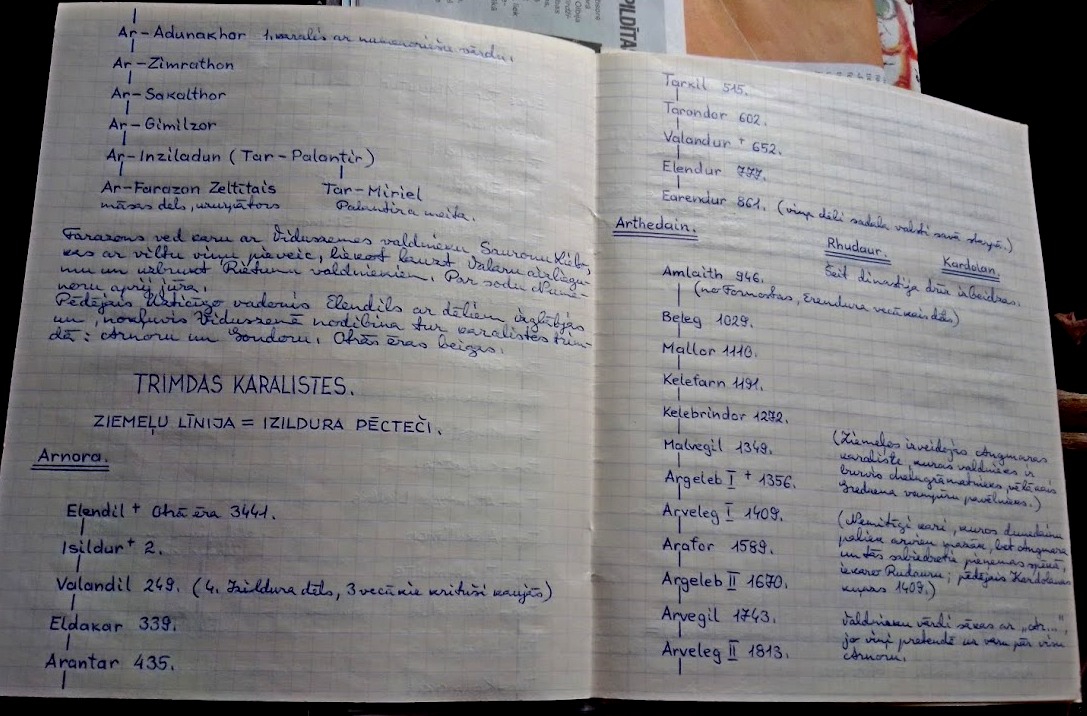 Ar-Adunakhor 1. karalis ar numenoriešu vārdu.
Ar-Zimrathon
Ar-Sakalthor
Ar-Gimilzor
Ar-Inziladun (Tar-Palantir)
Ar-Farazon Zeltītais Tar-Miriel
māsas dēls, uzurpators Palantira meita.
Farazons ved karu ar Viduszemes valdnieku Sauronu, kas
ar viltu viņu pieveic, liekot lauzt Valaru aizliegu-
mu un uzbrukt Rietumu valdniekiem. Par sodu Nume-
noru aprij jūra.
Pēdējais Uzticīgo vadonis Elendils ar dēliem izglābjas
un, nokļuvis Viduszemē nodibina tur karalistes trim-
dā: Arnoru un Gondoru. Otrās ēras beigas.
TRIMDAS KARALISTES.
ZIEMEĻU LĪNIJA = IZILDURA PĒCTEČI.
Arnora.
Elendil + Otrā ēra 3441.
Isildur + 2.
Valandil 249. (4. Izildura dēls, 3 vecākie krituši kaujās)
Eldakar 339.
Arantar 435.
Tarkil 515.
Tarondor 602.
Valandur + 652.
Elendur 777.
Earendur 861. (viņa dēli sadala valsti savā starpā.)
Arthedain.
Rhudaur. Kardolan.
Šeit dinastija drīz izbeidzas.
Amlaith 946.
(no Fornostas, Erendura vecākais dēls)
Beleg 1029.
Mallor 1110.
Kelefarn 1191.
Kelebrindor 1272.
Malvegil 1349.
(Ziemeļos izveidojas Angmaras
karaliste, kuras valdnieks ir
burvis vēlākais
pavēlnieks.)
Argeleb I + 1356.
Arveleg I 1409.
(Nemitīgi kari, kuros dunedainu
paliek arvien mazāk, bet Angmara
un tās sabiedrotie pieņemas spēkā,
iekaro Rudauru; pēdējais Kardolanas
1409.)
Arafor 1589.
Argeleb II 1670.
Arvegil 1743.
Arveleg II 1813.
Valdnieku vārdi sākas ar „Ar...”,
jo viņi pretendē uz varu pār visu
Arnoru.
PILDĪTA